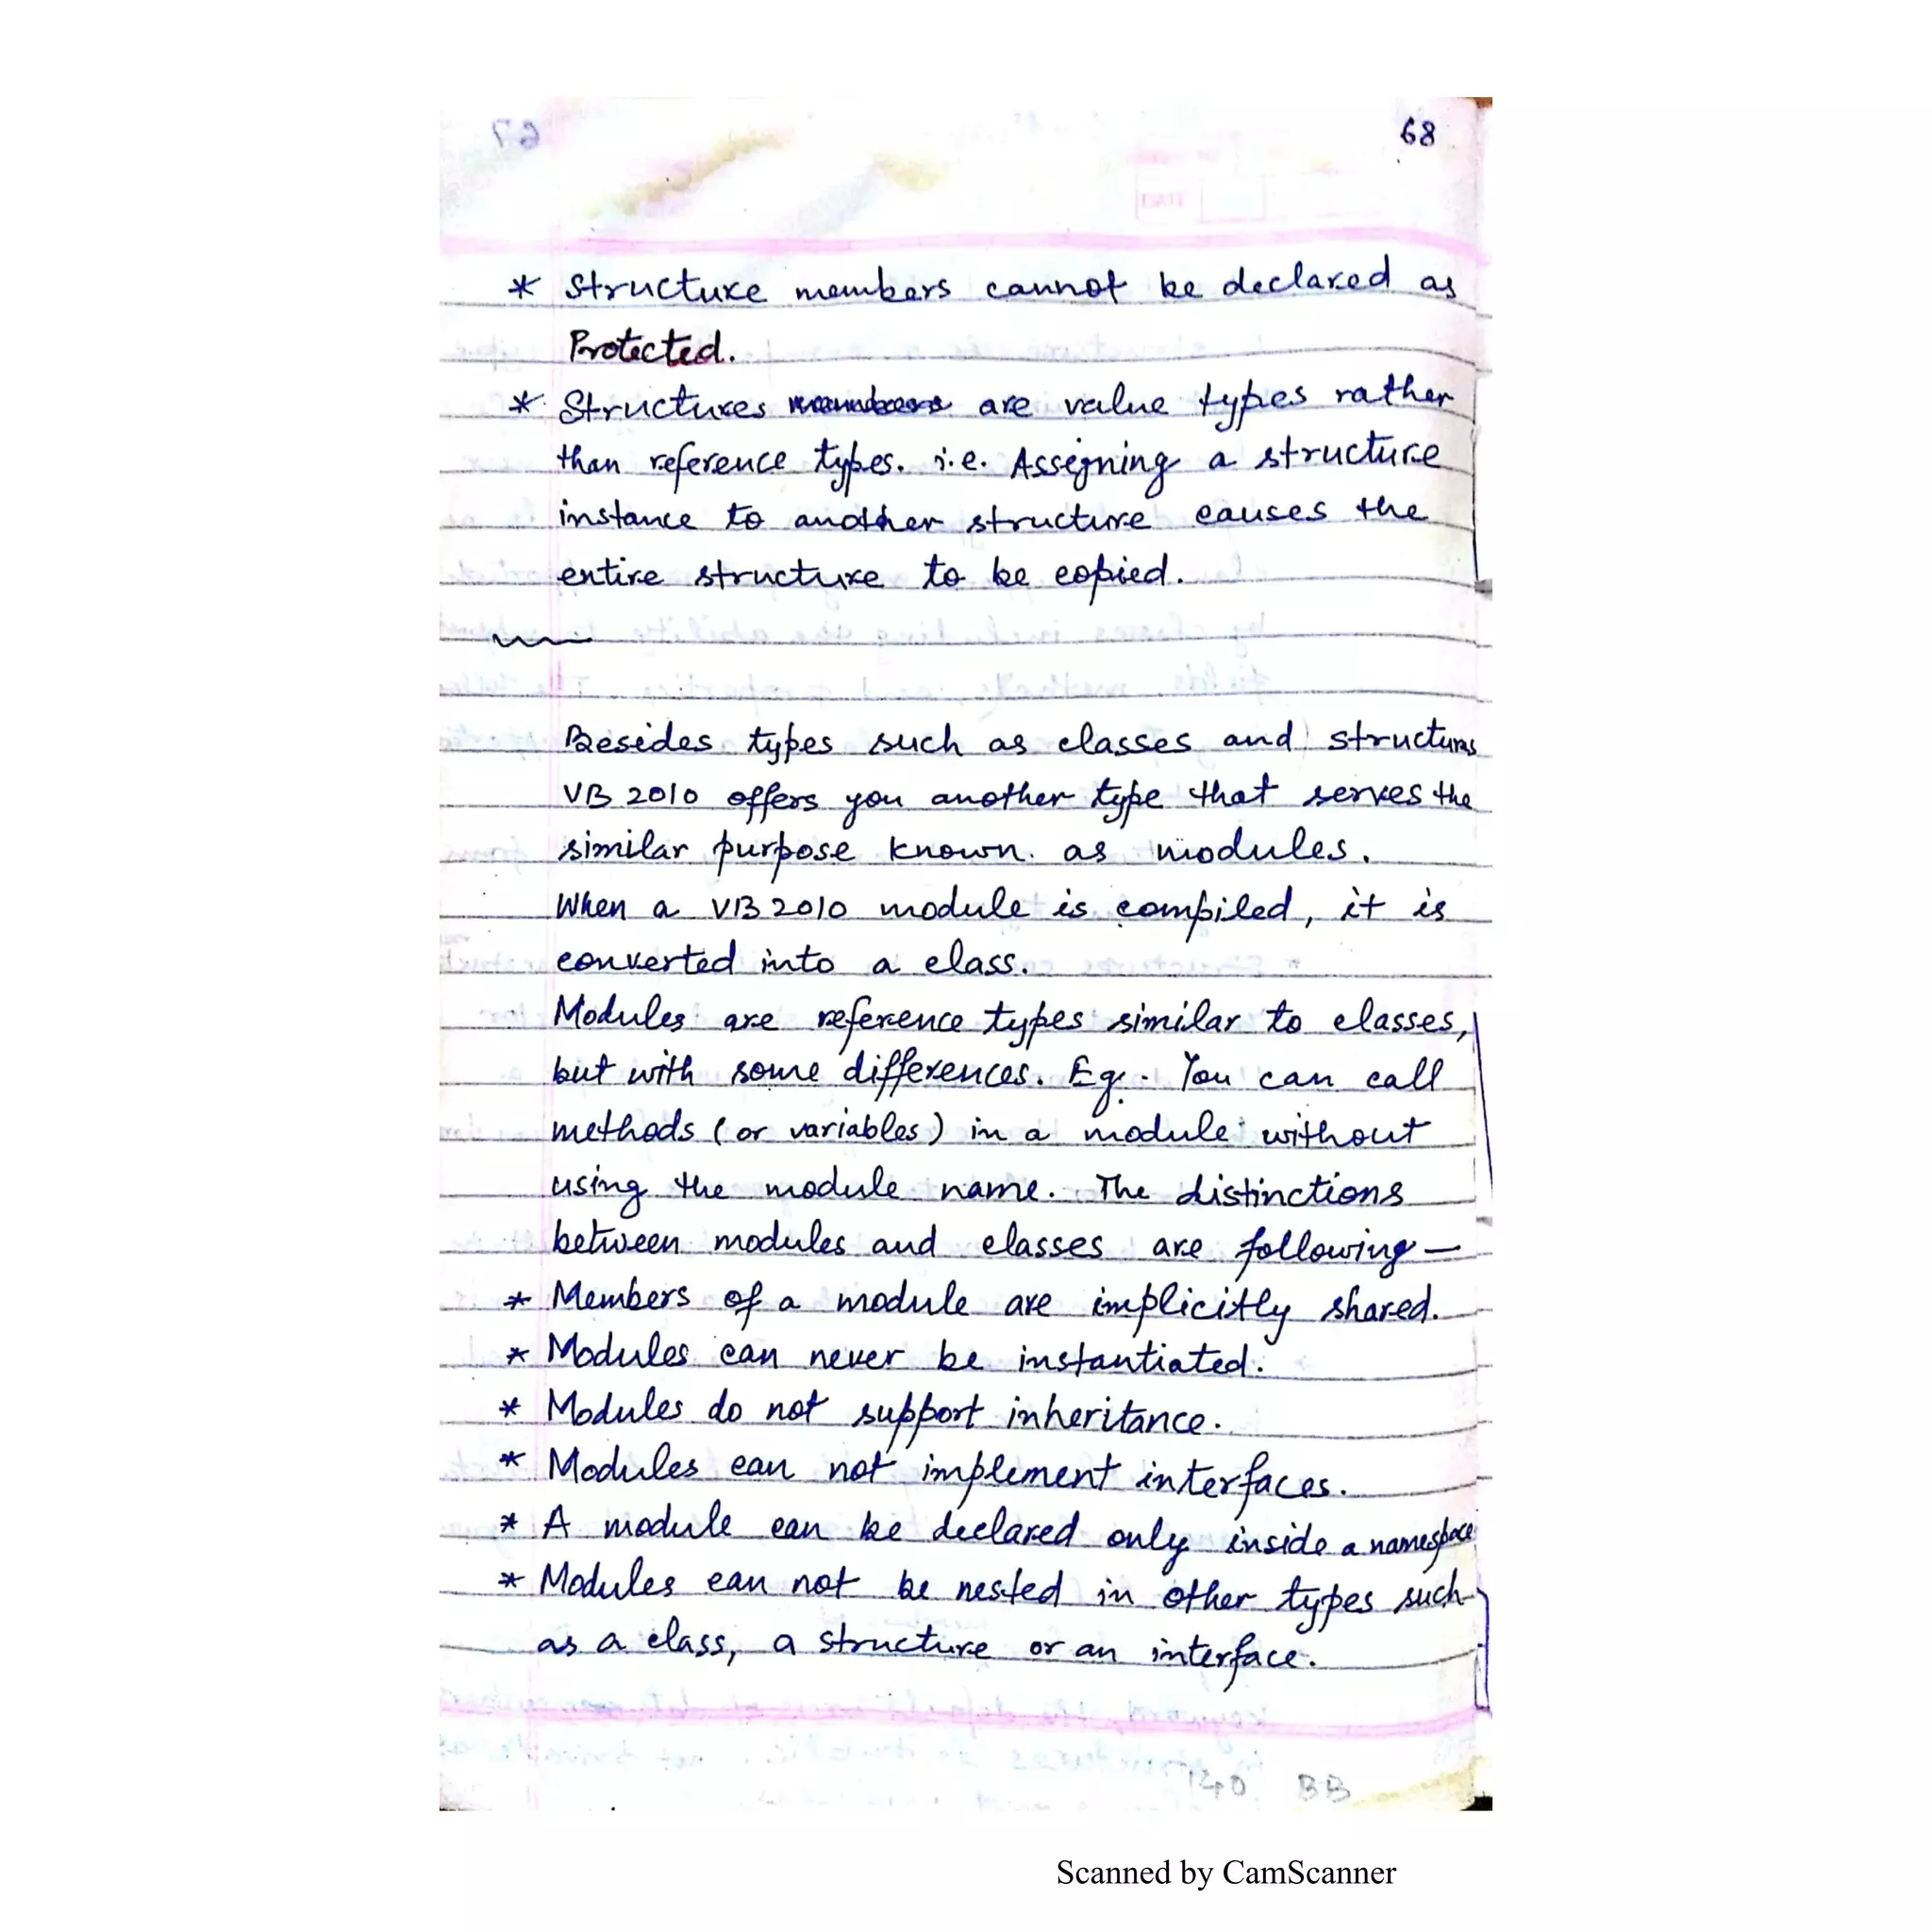 68
* Structure members cannot be declared as
Protected.
* Structures are value types rather
than reference types. i.e. Assigning a structure
instance to another structure causes the
entire structure to be copied.
Besides types such as classes and structures
VB 2010 offers you another type that serves the
similar purpose known as modules.
When a VB 2010 module is compiled, it is
converted into a class.
Modules are reference types similar to classes,
but with some differences. Eg. You can call
methods (or variables) in a module without
using the module name. The distinctions
between modules and classes are following —
* Members of a module are implicitly shared.
* Modules can never be instantiated.
* Modules do not support inheritance.
* Modules can not implement interfaces.
* A module can be declared only inside a namespace
* Modules can not be nested in other types such
as a class, a structure or an interface.
Scanned by CamScanner